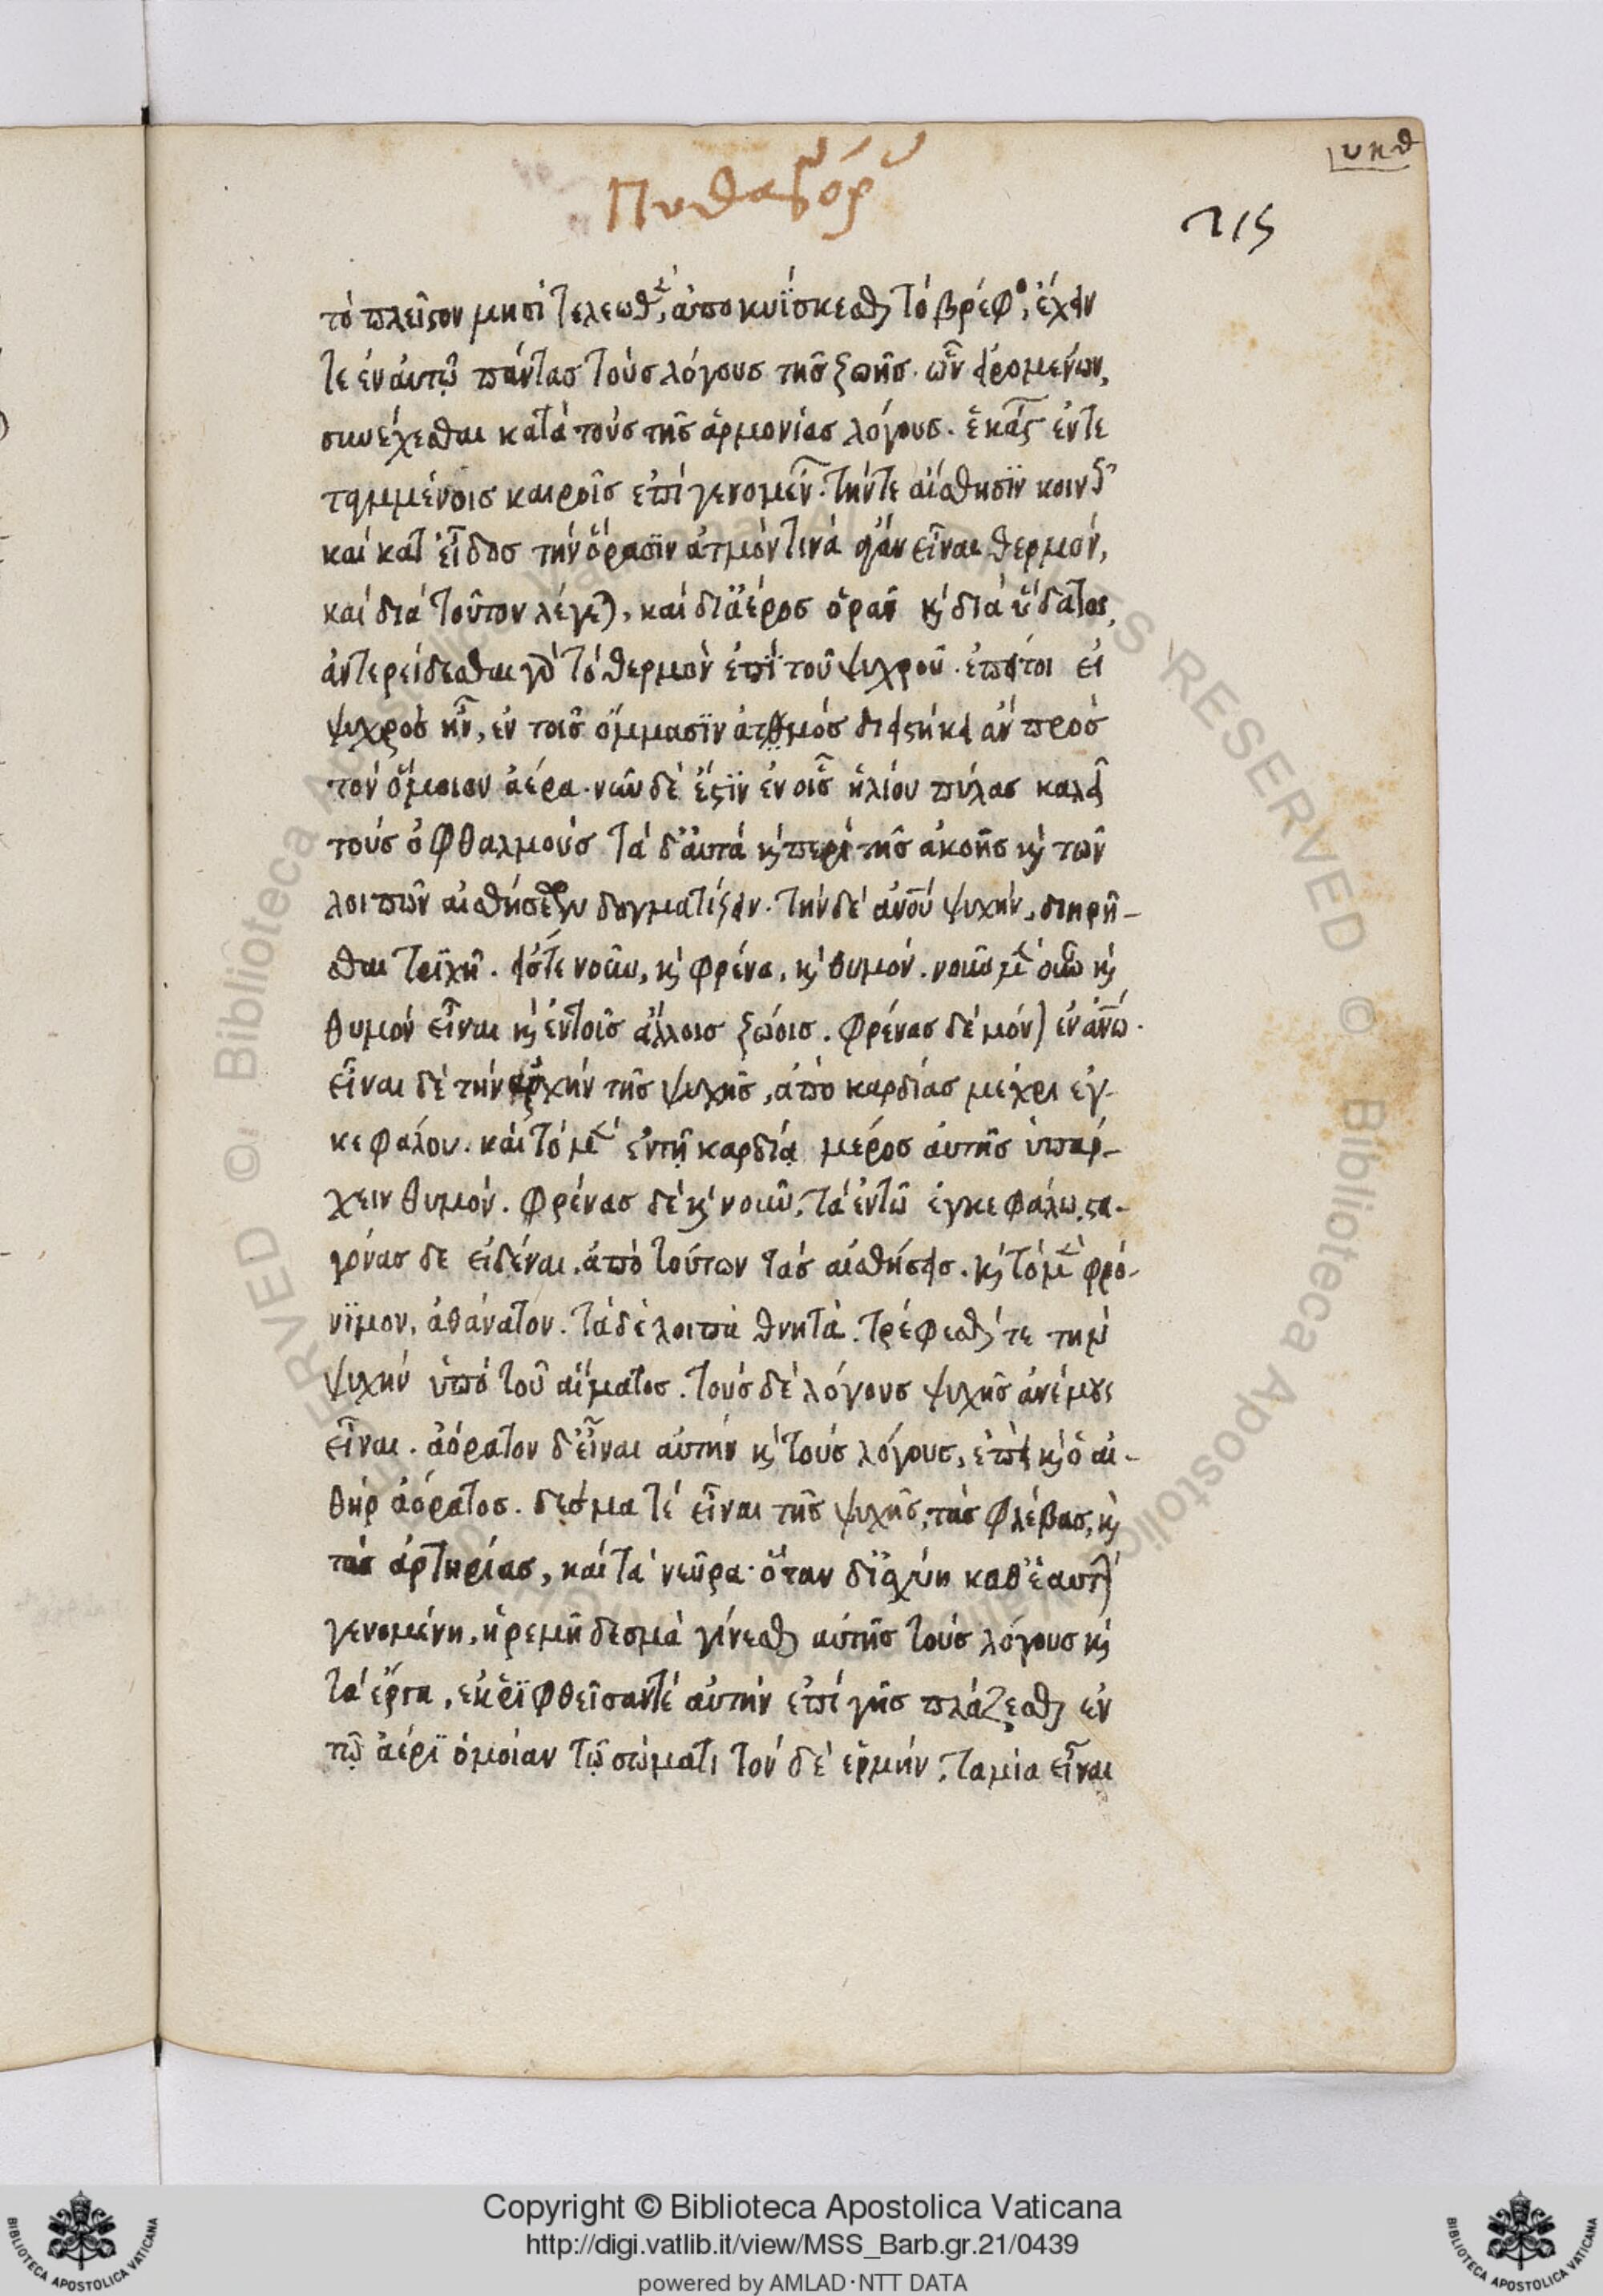 υκθ
Πυθαγόρου
215
τὸ πλεῖστον μησὶ τελεωθὲν, ἀποκυΐσκεσθαι τὸ βρέφος, ἔχειν
τε ἐν αὐτῷ πάντας τοὺς λόγους τῆς ζωῆς. ὧν εἰρομένων,
συνέχεσθαι κατὰ τοὺς τῆς ἁρμονίας λόγους. ἑκάστων ἐν τε
ταγμένοις καιροῖς ἐπιγενομένων. τήν τε αἴσθησϊν κοινῶς
καὶ κατ' εἶδος τὴν ὅρασϊν ἀτμόν τινά εἶναι θερμόν,
καὶ διὰ τοῦτον λέγεται, καὶ δι' ἀέρος ὁρᾶν καὶ διὰ ὕδατος,
ἀντερείδεσθαι γὰρ τὸ θερμὸν ἐπῒ τοῦ ψυχροῦ. ἐπείτοι εἰ
ψυχρὸς ἦν, ἐν τοῖς ὄμμασϊν ἀτμός διειστήκει ἂν πρὸς
τὸν ὅμοιον ἀέρα. νῦν δὲ ἔστϊν ἐν οἷς ἡλίου πύλας καλεῖ
τοὺς ὀφθαλμούς τὰ δ' αὐτὰ καὶ περὶ τῆς ἀκοῆς καὶ τῶν
λοιπῶν αἰσθήσεων δογματίζειν. τὴν δὲ ἀνου ψυχήν, διηρῆ-
σθαι τρϊχῆ. εἴς τε νοῦν, καὶ φρένα, καὶ θυμόν. νοῦν μὲν οὖν καὶ
θυμόν εἶναι καὶ ἐν τοῖς ἄλλοις ζώοις. φρένας δὲ μόνον ἐν ἀνω.
εἶναι δὲ τὴν ἀρχὴν τῆς ψυχῆς, ἀπὸ καρδίας μέχρι ἐγ-
κεφάλου. καὶ τὸ μὲν ἐν τῇ καρδίᾳ μέρος αὐτῆς ὑπάρ-
χειν θυμόν. φρένας δὲ καὶ νοῦν, τὰ ἐν τῶ ἐγκεφάλω. στα-
γόνας δε εἰδέναι. ἀπὸ τούτων τὰς αἰσθήσεις. καὶ τὸ μὲν φρό-
νϊμον, ἀθάνατον. τὰ δὲ λοιπὰ θνητὰ. τρέφεσθαί τε τὴν
ψυχὴν ὑπὸ τοῦ αἵματος. τοὺς δὲ λόγους ψυχῆς ἀνέμους
εἶναι. ἀόρατον δ' εἶναι αὐτὴν καὶ τοὺς λόγους, ἐπεὶ καὶ ὁ αἰ-
θὴρ ἀόρατος. δεσμά τέ εἶναι τῆς ψυχῆς, τὰς φλέβας, καὶ
τὰς ἀρτηρίας, καὶ τὰ νεῦρα. ὅταν δ' ἰσχύη καθ' ἑαυτὴν
γενομένη, ἠρεμῆ δεσμὰ γίνεσθαι αὐτῆς τοὺς λόγους καὶ
τὰ ἔργα. ἐκρϊφθεῖσαν τέ αὐτὴν ἐπὶ γῆς πλάζεσθαι ἐν
τῷ ἀέρϊ ὁμοίαν τῷ σώματι τὸν δὲ ἑρμὴν, ταμία εἶναι
Copyright © Biblioteca Apostolica Vaticana
http://digi.vatlib.it/view/MSS_Barb.gr.21/0439
powered by AMLAD·NTT DATA